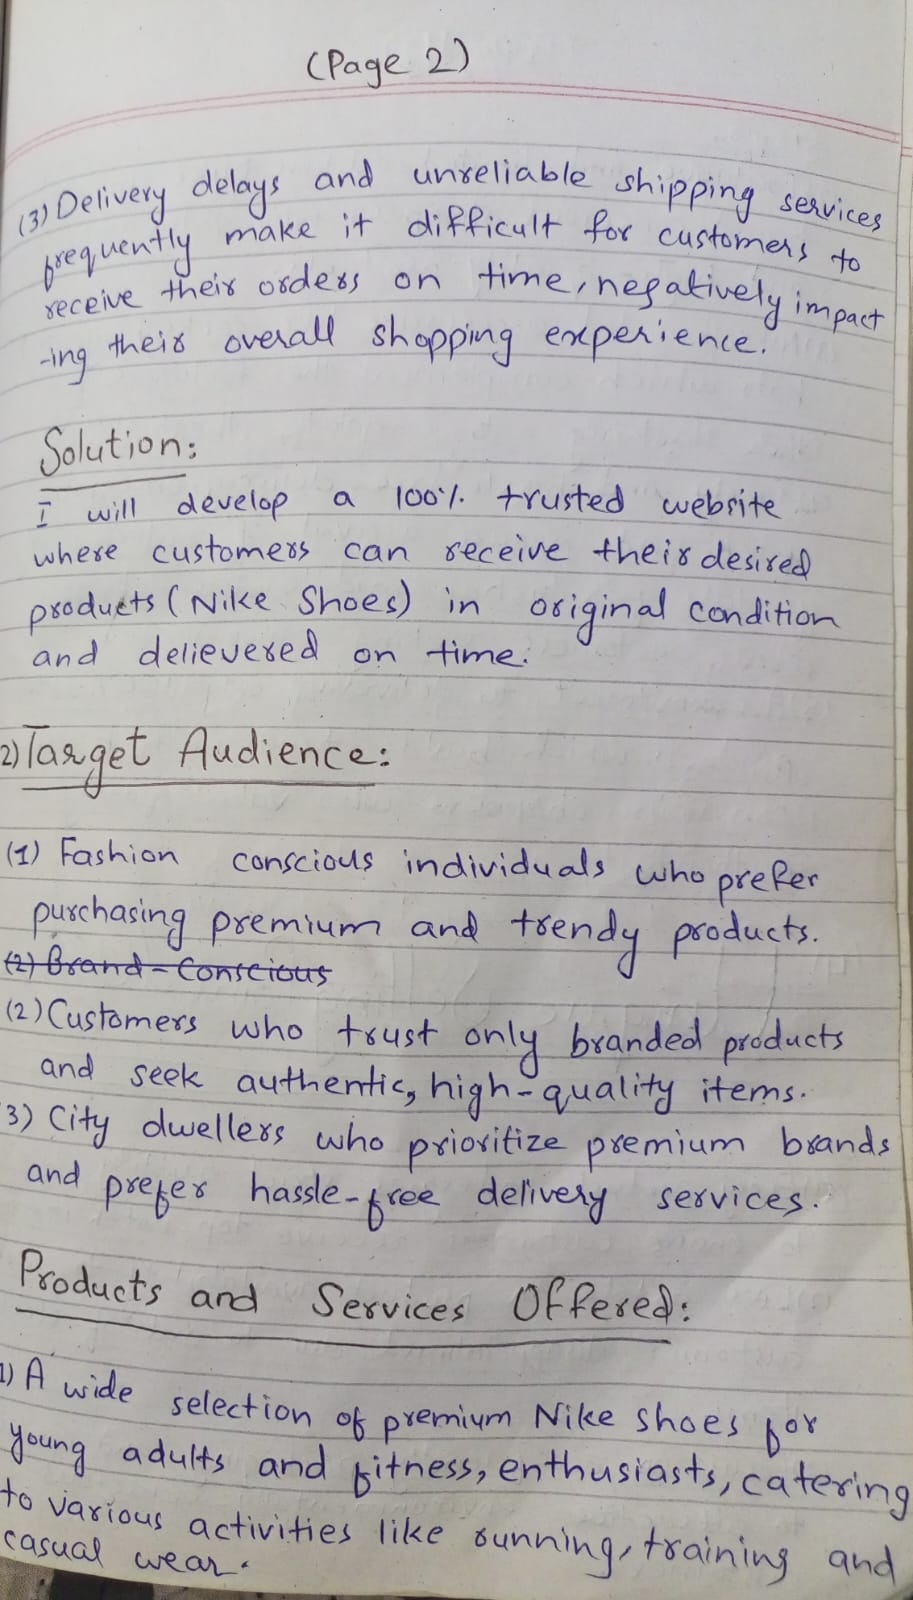 (Page 2)
(3) Delivery delays and unreliable shipping services
frequently make it difficult for customers to
receive their orders on time, negatively impact
-ing their overall shopping experience.
Solution:
I will develop a 100% trusted website
where customers can receive their desired
products (Nike Shoes) in original condition
and delievered on time.
2) Target Audience:
(1) Fashion conscious individuals who prefer
purchasing premium and trendy products.
(2) Brand-Conscious
(2) Customers who trust only branded products
and seek authentic, high-quality items.
3) City dwellers who prioritize premium brands
and prefer hassle-free delivery services.
Products and Services Offered:
1) A wide selection of premium Nike shoes for
young adults and fitness, enthusiasts, catering
to various activities like running, training and
casual wear.